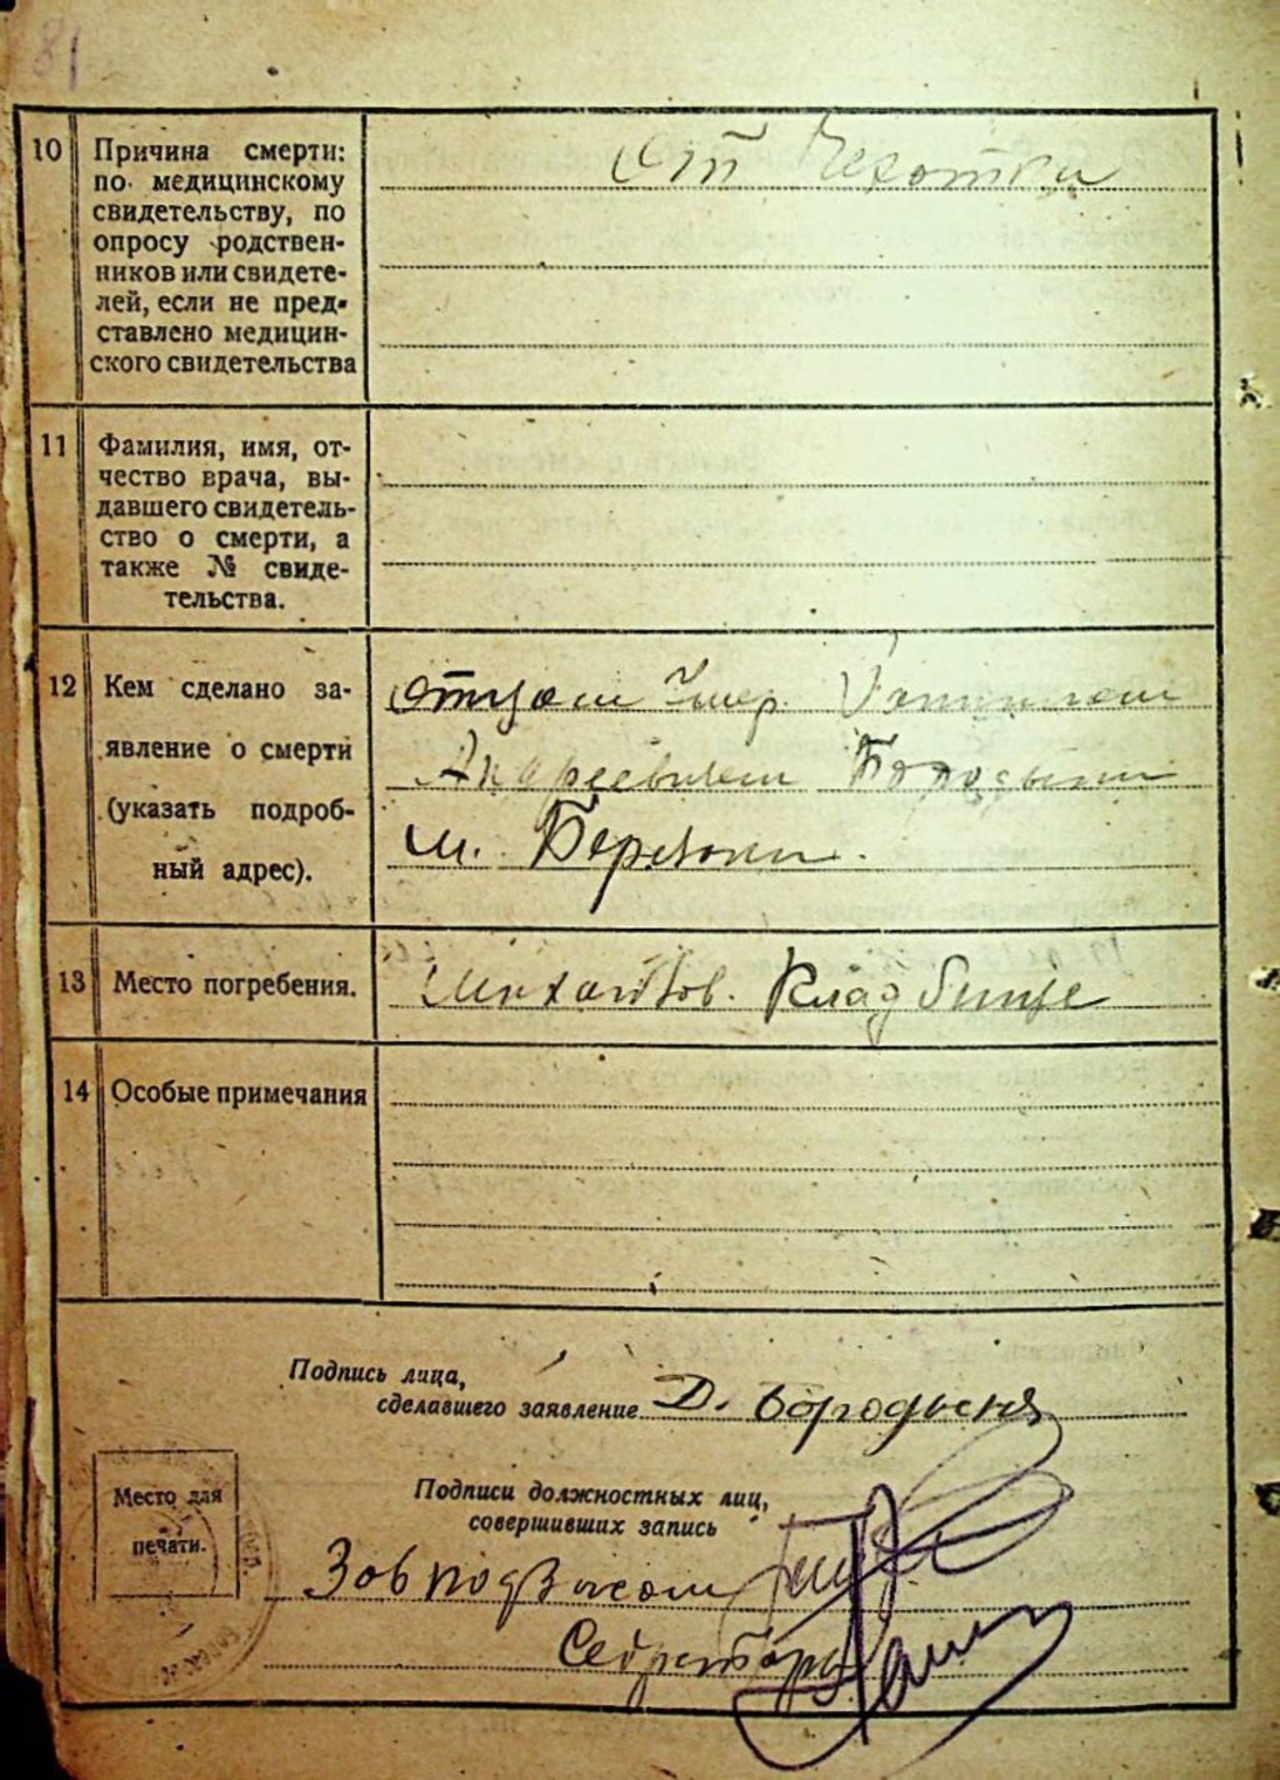 81
10 Причина смерти:
по медицинскому
свидетельству, по
опросу родствен-
ников или свидете-
лей, если не пред-
ставлено медицин-
ского свидетельства
От Чехотки
11 Фамилия, имя, от-
чество врача, вы-
давшего свидетель-
ство о смерти, а
также № свиде-
тельства.
12 Кем сделано за-
явление о смерти
(указать подроб-
ный адрес).
Отцом Умер.
Андреевичем Бородыни
м.
13 Место погребения.
Кладбище
14 Особые примечания
Подпись лица,
сделавшего заявление Д. Бородыня
Подписи должностных лиц,
совершивших запись
Место для
печати.
Зав подзагсом
Секретарь